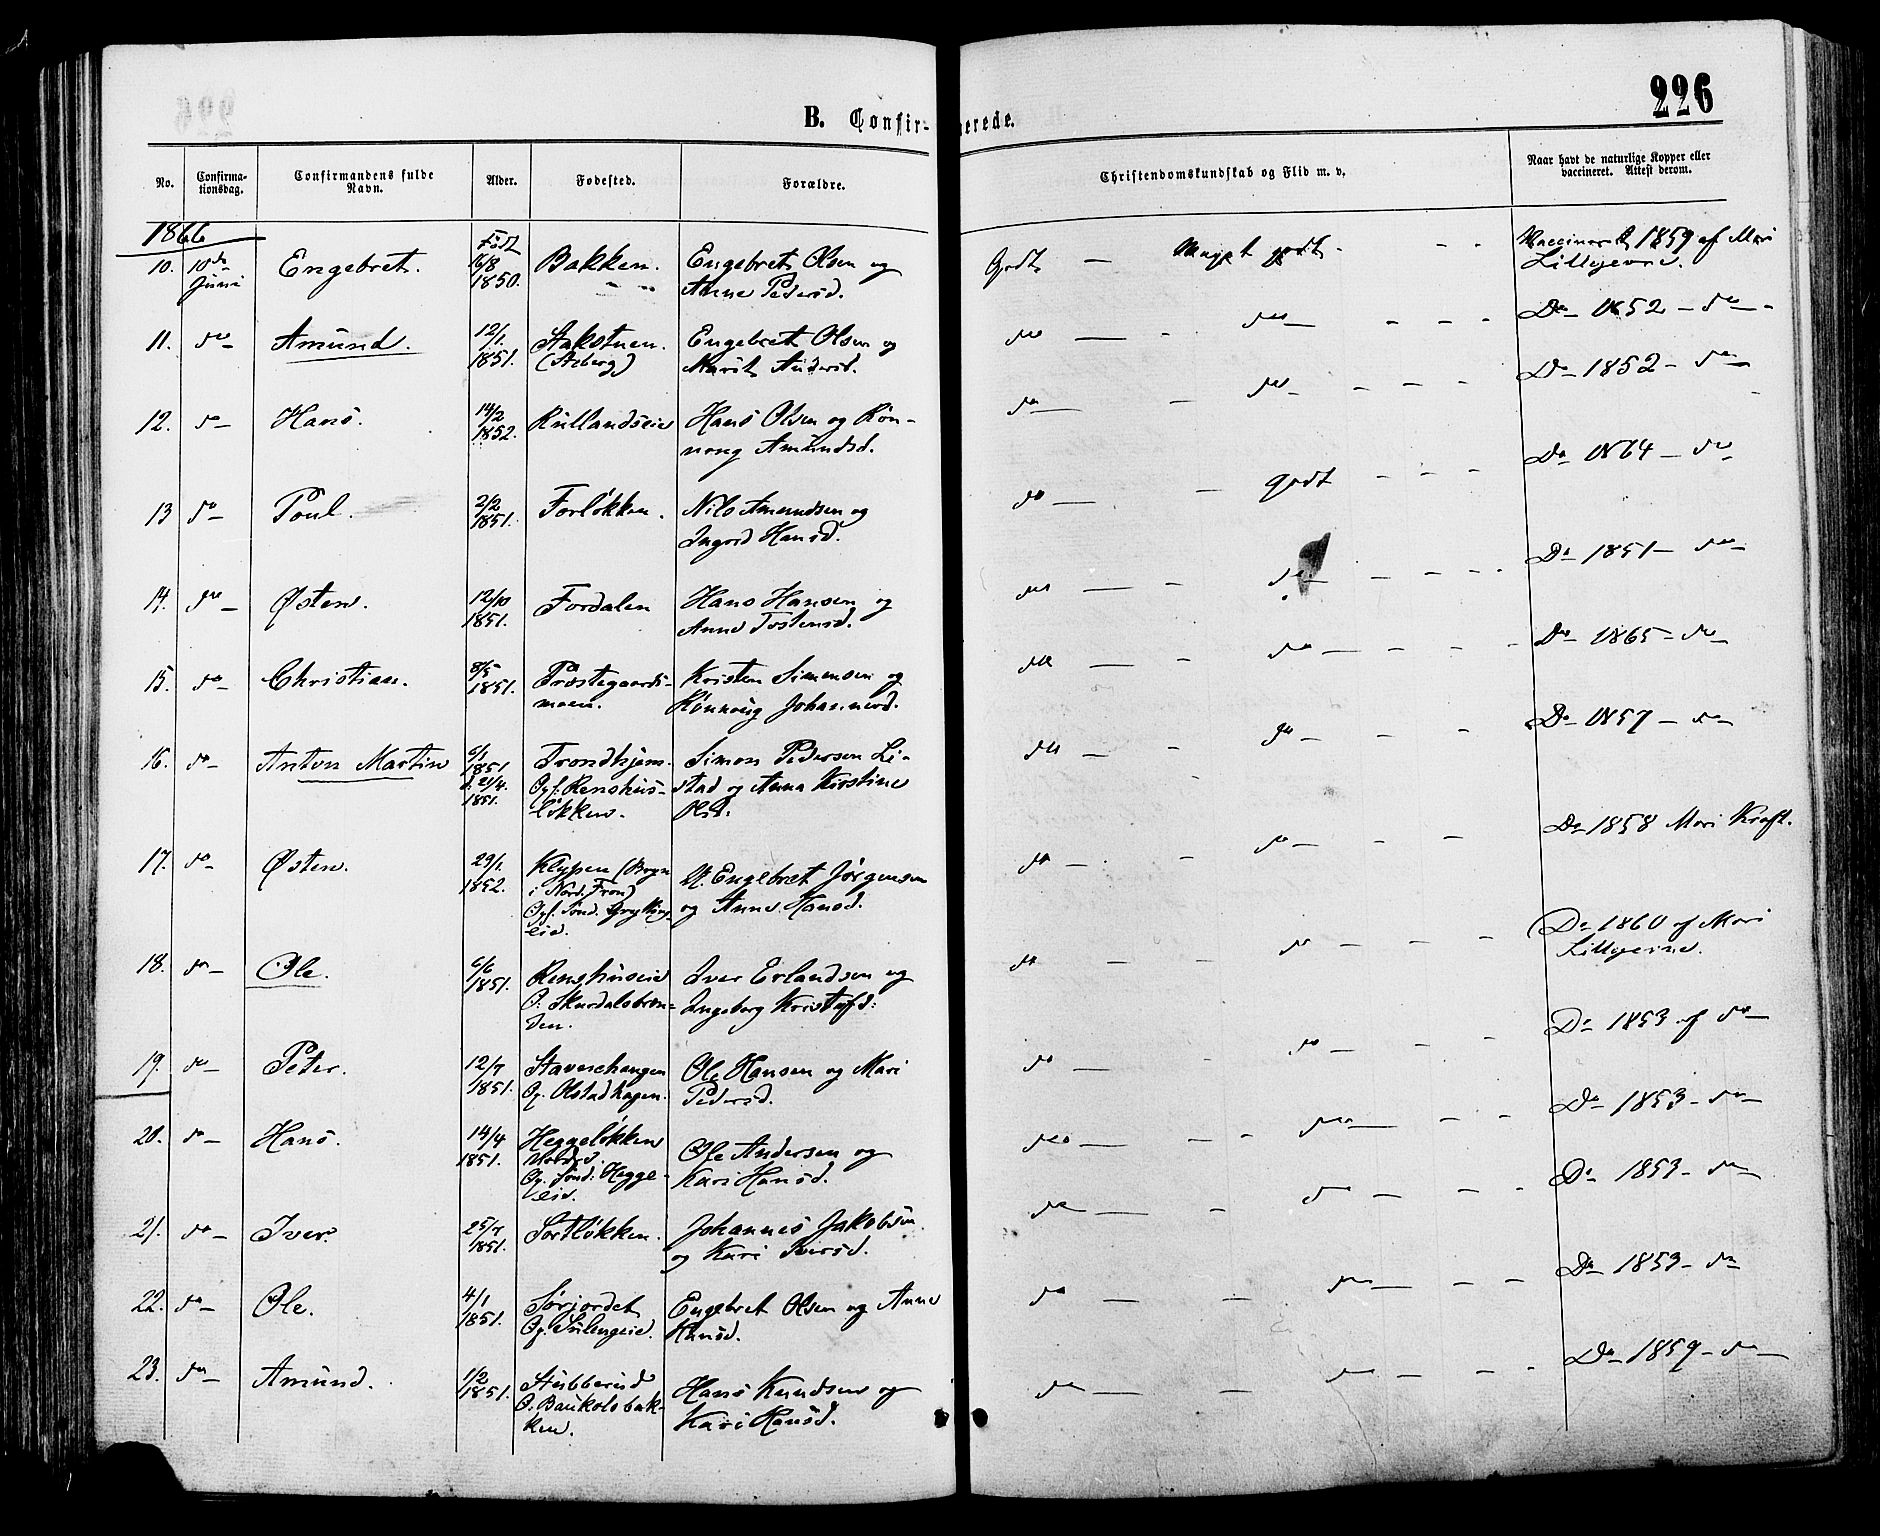 226
B. Confir- merede.
No. Confirma-tionsdag. Confirmandens fulde Navn. Alder. Fødested. Forældre. Christendomskundskab og Flid m. v. Naar havt de naturlige Kopper eller vaccineret. Attest derom.
1866
10. 10de Juni Engebret. Født 16/8 1850. Bakken. Engebret Olsen og Anne Pedersd. Godt — Meget godt - - Vaccineret 1859 af Mari
11. do — Amund. 12/1 1851. Engebret Olsen og Marit Andersd. do — - do — - - - Do 1852 — do —
12. do — Hans. 14/2 1852. Rullandseie Hans Olsen og Røn-nong Amundsd. do — — do — - - - Do 1852 — do
13 do — Poul. 2/2 1851. Forløkken. Nils Amundsen og Ingrid Hansd. do — — godt - - - Do 1864 — do
14. do — Østen. 12/10 1851. Fordalen Hans Hansen og Anne Tostensd. do — - do — - - - Do 1851 — do
15. do — Christian. 8/5 1851. Præstegaards-moen. Kristen Simensen og Rønnoug Johannesd. do — - do — - - Do 1865 — do
16. do — Anton Martin 6/1 1851 d. 21/4 1851. Trondhjem. Opf. Renshus-løkken. Simon Pedersen Li-stad og Anna Kirstine Olsd. do — - do — - - Do 1857 — do
17. do — Østen. 29/1 1852. Klypen (Bryn i Nord. Fron) Opf. Sønd. Grytting-eie. U. Engebret Jørgensen og Anne Hansd. do — - do — - - Do 1858 Mari Kraft.
18. do — Ole. 6/6 1851. Renshuseie O. Skurdalsbræn-den. Iver Erlandsen og Ingeborg Kristofd: do — — do — - - Do 1860 af Mari
19. do — Peter. 12/7 1851. Op. Olstadhagen. Ole Hansen og Mari Pedersd. do — - do — - - Do 1853 af do —
20. do — Hans. 14/4 1851. Heggeløkken Op. Sønd. Hegge-eie. Ole Andersen og Kari Hansd. do — - - do — - - Do 1853 — do —
21. do — Iver. 25/7 1851. Sortløkken. Johannes Jakobsen og Kari Iversd. do — - do — - - Do 1853 — do
22. do — Ole. 4/1 1851. Sørjordet Op. Sulengeie. Engebret Olsen og Anne Hansd. do — — do — - - Do 1853 — do
23. do — Amund. 1/2 1851. Stubberud O. Baukolsbak-ken. Hans Knudsen og Kari Hansd. do — — do — - - Do 1859 — do —